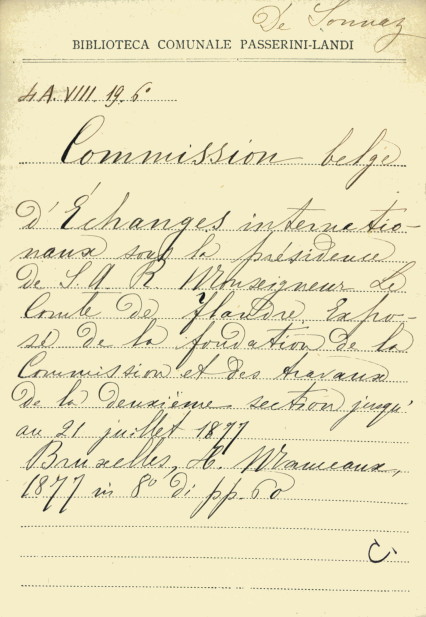 De Sonnaz
BIBLIOTECA COMUNALE PASSERINI-LANDI
4 A. VIII. 19. 6°
Commission belge
d'Échanges internatio-
naux sous la présidence
de S. A. R. Monseigneur Le
Comte de Flandre Expo-
sé de la fondation de la
Commission et des travaux
de la deuxième section jusqu'
au 21 juillet 1877
Bruxelles, H. Manceaux,
1877 in 8° di pp. 60
C.